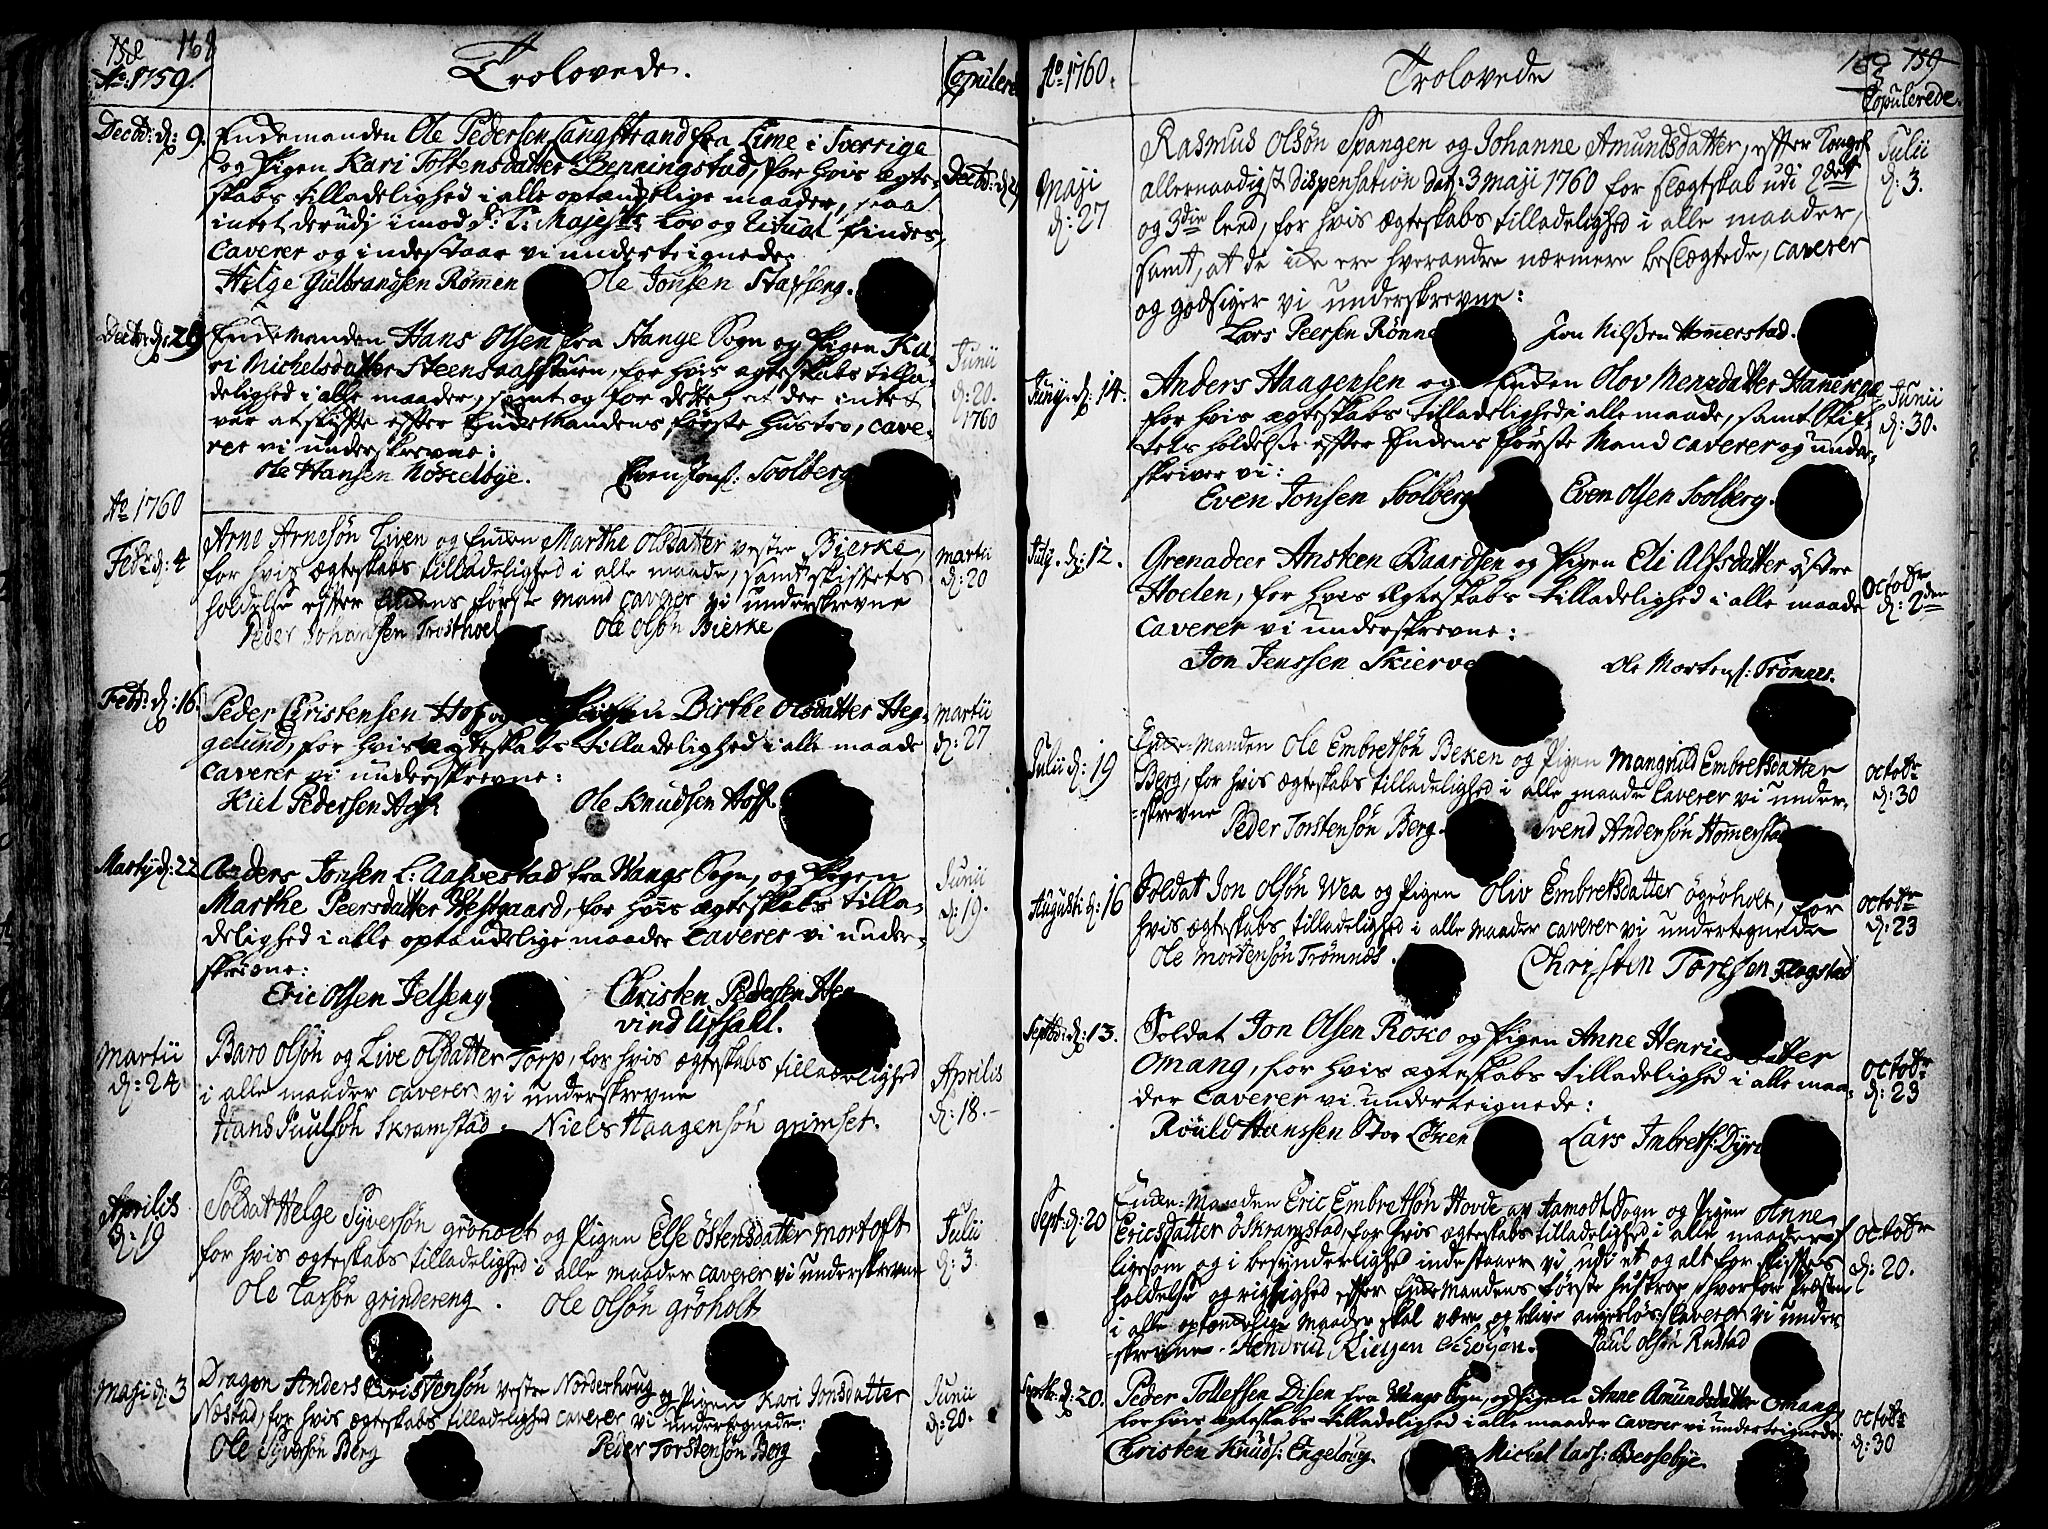 158 168
Ao: 1759.
Trolovede.
Copulerede
Decbr: d: 9. Enkemanden Ole Pedersen Langstrand fra Lime i Sverrige
og Pigen Kari Tostensdatter Benningstad, for hvis ægte-
skabs tilladelighed i alle optænkelige maader, saa
intet derudj imod Kl: Majestts: Lov og Ritual findes,
Caverer og indestaar vi undertegnede.
Helge Gulbrandsen Rømen Ole Jonsen Staffseng.
Decbr: d: 29
Decbr: d: 29 Enkemanden Hans Olsen fra Stange Sogn og Pigen Ka-
ri Michelsdatter Steensaasstuen, for hvis ægteskabs tilla-
delighed i alle maader, samt og for dette, at der intet
var at skifte efter Enkemandens første Hustro, cave-
rer vi underskrevne:
Ole Hansen Nøseelbye. Even Jons: Soolberg
Junii
d: 20.
1760
Ao 1760
Febr: d: 4 Arne Arnesøn Lien og Enken Marthe Olsdatter vestre Bierke,
for hvis Ægteskabs tilladelighed i alle maade, samt skiftets
holdelse efter Enkens første mand caverer vi underskrevne
Peder Johansen Trosthoel Ole Olsøn Bierke
martii
d: 20
Febr: d: 16. Peder Christensen Hof og Pigen Birthe Olsdatter Heg-
gelund, for hvis ægteskabs tilladelighed i alle maade
caverer vi underskrevne:
Kiel Pedersen Hoff. Ole Knudsen Hoff
martii
d: 27
Martij d: 22 Anders Jonsen L: Aalvestad fra Wangs Sogn, og Pigen
Marthe Peersdatter Westgaard, for hvis ægteskabs tilla-
delighed i alle optænkelige maader Caverer vi under-
skrivne:
Eric Olsen Jelseng Christen Pedersen Hen
vind Opsahl.
Junii
d: 19.
Martii
d: 24
Baro Olsøn og Live Olsdatter Torp, for hvis ægteskabs tilladelighed
i alle maader caverer vi underskrevne
Hans Juulsøn Skramstad. Niels Haagensøn grimset.
Aprilis
d: 18.
Aprilis
d: 19
Soldat Helge Syversøn grøholt og Pigen Else Østensdatter mortoft
for hvis ægteskabs tilladelighed i alle maader caverer vi underskrevne
Ole Larsøn grindereng. Ole Olsøn grøholt
Julii
d: 3.
Maji d: 3 Dragon Anders Christensøn vestre Norderhoug og Pigen Kari Jonsdatter
Næstad, for hvis ægteskabs tilladelighed caverer vi undertegnede:
Ole Syversøn Berg Peder Torstensøn Berg
Junii
d: 20.
Ao 1760.
Trolovede
159
Copulerede.
Maji
d: 27
Rasmus Olsøn Spangen og Johanne Amundsdatter, efter Kongel
allernaadigst Dispensation dat: 3 maji 1760 for slægtskab udi 2det
og 3die leed, for hvis Ægteskabs tilladelighed i alle maader,
samt, at de icke ere hverandre nærmere beslægtede, caverer
og godsiger vi underskrevne:
Lars Peersen Rønne Jon Nilssen Homerstad.
Julii
d: 3.
Junij d: 14. Anders Haagensen og Enken Olov Mensdatter
for hvis ægteskabs tilladelighed i alle maade, samt Skif-
tets holdelse efter Enkens første Mand caverer og under-
skriver vi:
Even Jonsen Soolberg Even Olsen Soolberg.
Junii
d: 30.
July. d: 12. Grenadeer Ansten Baardsen og Pigen Eli Alfsdatter østre
Hoelen, for hvis Ægteskabs tilladelighed i alle maade
Caverer vi underskrevne:
Jon Jenssen Skierve Ole Mortens: Trømnes.
octobr
d: 2den
Julii d: 19 Enke-Manden Ole Embretsøn Beken og Pigen Mangnild Embretsdatter
Berg, for hvis ægteskabs tilladelighed i alle maade Caverer vi under-
-skrevne
Peder Torstensøn Berg. Svend Andersøn Homerstad
octobr
d: 30
Augusti d: 16 Soldat Jon Olsøn Wea og Pigen Oliv Embretsdatter øgrøholt, for
hvis ægteskabs tilladelighed i alle maader caverer vi undertegnede
Ole Mortensøn Trømnæs. Christen Toresen Flagstad
octobr
d: 23
Septbr: d: 13. Soldat Jon Olsen Roko og Pigen Anne Henricsdatter
Omang, for hvis ægteskabs tilladelighed i alle maa-
der Caverer vi undertegnede:
Rouild Hanssen Stor Løken Lars Imbrets: Dyre
octobr
d: 23
Sept: d: 20 Enke-Manden Eric Embretsøn Hovde av Aamodt Sogn og Pigen Anne
Ericsdatter øskramstad, for hvis ægteskabs tilladelighed i alle maader
ligesom og i besynderlighed indestaaer vi, udi et og alt for skiftes
holdelse og rigtighed efter Enkemandens første hustrue, hvorfor Præsten
i alle optænkelige maader skal være og blive angerløs: Caverer vi under
-skrevne. Paul Olsøn Rustad
octobr
d: 20.
Septbr: d: 20. Peder Tollefsen Disen fra Wangs Sogn, og Pigen Anne Amundsdatter Omang,
for hvis ægteskabs tilladelighed i alle maader caverer vi undertegnede:
Christen Knuds: Engeloug. Mickel Lars: Berssebye.
octobr
d: 30